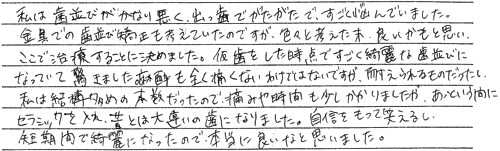 私は歯並びがかなり悪く、出っ歯でがたがたで、すごく悩んでいました。
金具での歯並び矯正も考えていたのですが、色々と考えた末、良いかもと思い、
ここで治療することに決めました。仮歯をした時点ですごく綺麗な歯並びに
なっていて驚きました。麻酔も全く痛くないわけではないですが、耐えられるものだったし、
私は結構多めの本数だったので、痛みや時間も少しかかりましたが、あっという間に
セラミックを入れ、昔とは大違いの歯になりました。自信をもって笑えるし、
短期間で綺麗になったので、本当に良いなと思いました。